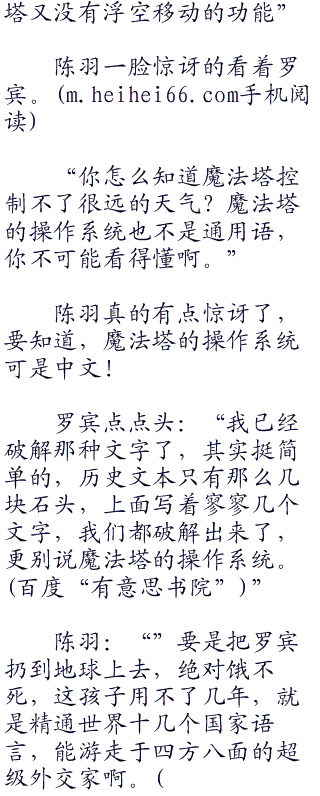 塔又没有浮空移动的功能”
陈羽一脸惊讶的看着罗
宾。(m.heihei66.com手机阅
读)
“你怎么知道魔法塔控
制不了很远的天气？魔法塔
的操作系统也不是通用语，
你不可能看得懂啊。”
陈羽真的有点惊讶了，
要知道，魔法塔的操作系统
可是中文！
罗宾点点头：“我已经
破解那种文字了，其实挺简
单的，历史文本只有那么几
块石头，上面写着寥寥几个
文字，我们都破解出来了，
更别说魔法塔的操作系统。
(百度“有意思书院”)”
陈羽：“”要是把罗宾
扔到地球上去，绝对饿不
死，这孩子用不了几年，就
是精通世界十几个国家语
言，能游走于四方八面的超
级外交家啊。(